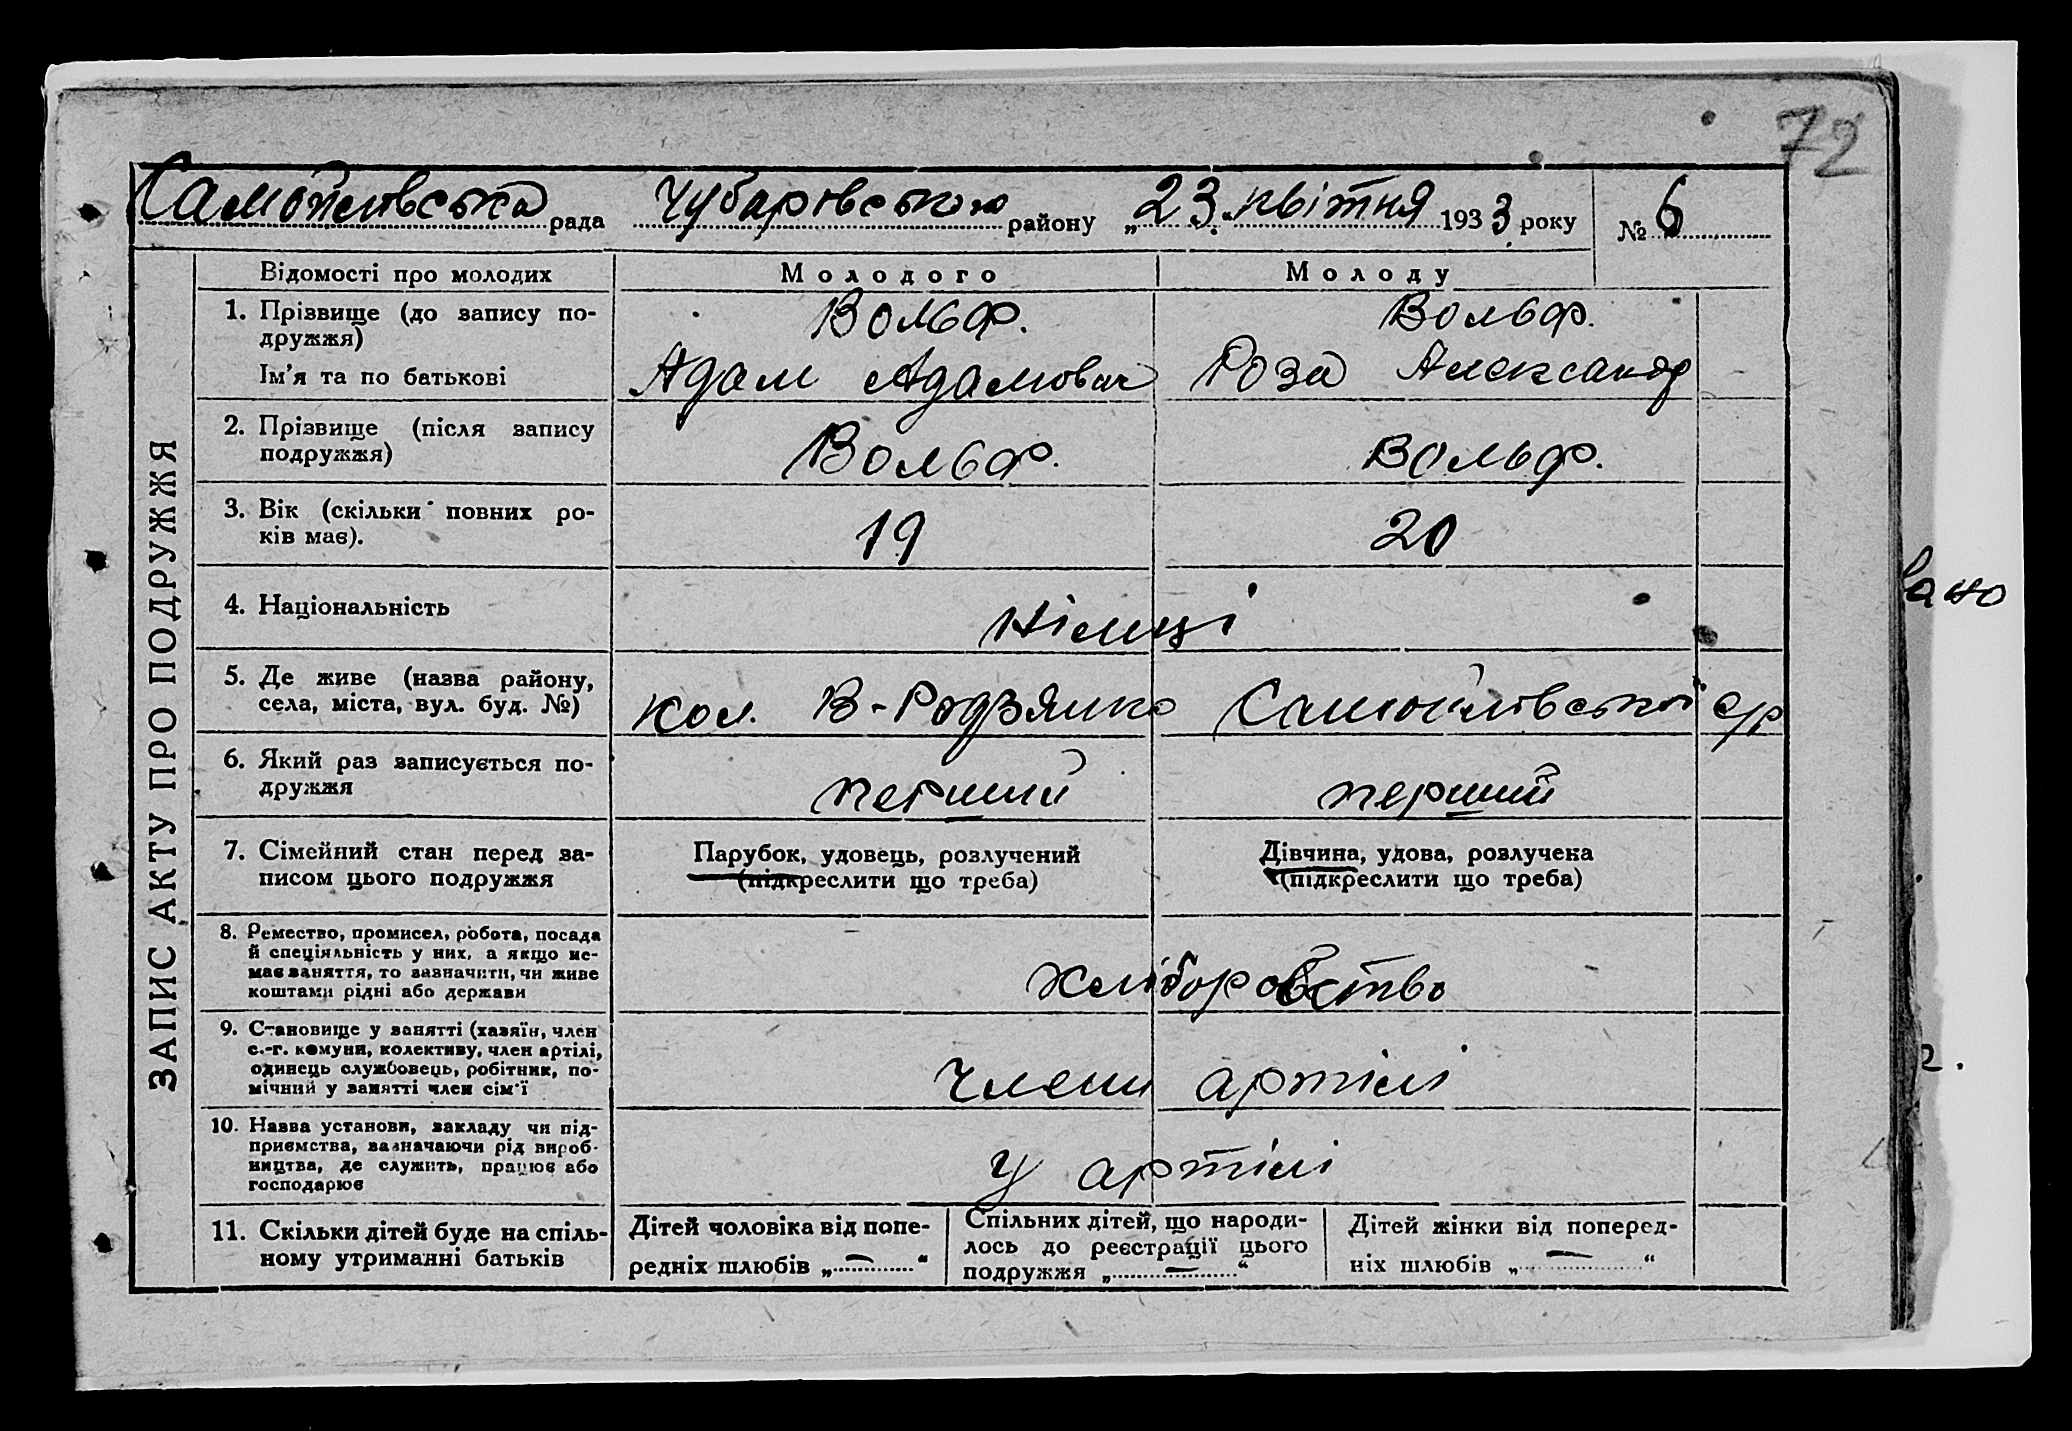 72
Самойлівська рада Чубарівського району „23“ квітня 1933 року № 6
ЗАПИС АКТУ ПРО ПОДРУЖЖЯ
Відомості про молодих Молодого Молоду
1. Прізвище (до запису по-
дружжя)
Вольф. Вольф.
Ім'я та по батькові Адам Адамович Роза Александр
2. Прізвище (після запису
подружжя)
Вольф. Вольф.
3. Вік (скільки повних ро-
ків має).
19 20
4. Національність німці
5. Де живе (назва району,
села, міста, вул. буд. №)
кол. В-Родзянко Самойлівської с/р
6. Який раз записується по-
дружжя
перший перший
7. Сімейний стан перед за-
писом цього подружжя
Парубок, удовець, розлучений
(підкреслити що треба)
Дівчина, удова, розлучена
(підкреслити що треба)
8. Ремество, промисел, робота, посада
й спеціяльність у них, а якщо не-
має заняття, то зазначити, чи живе
коштами рідні або держави
хліборобство
9. Становище у занятті (хазяїн, член
с.-г. комуни, колективу, член артілі,
одинець службовець, робітник, по-
мічний у занятті член сім'ї
члени артілі
10. Назва установи, закладу чи під-
приємства, зазначаючи рід вироб-
ництва, де служить, працює або
господарює
у артілі
11. Скільки дітей буде на спіль-
ному утриманні батьків
Дітей чоловіка від попе-
редніх шлюбів „—“
Спільних дітей, що народи-
лось до реєстрації цього
подружжя „—“
Дітей жінки від поперед-
ніх шлюбів „—“